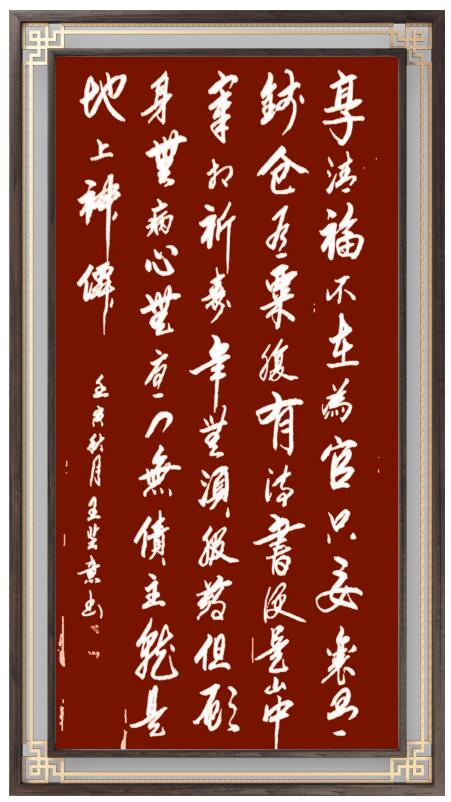 享清福不在為官只要囊有
錢倉有粟腹有詩書便是山中
宰相祈壽年無須服藥但願
身無病心無憂門無債主就是
地上神僊
壬寅秋月王書